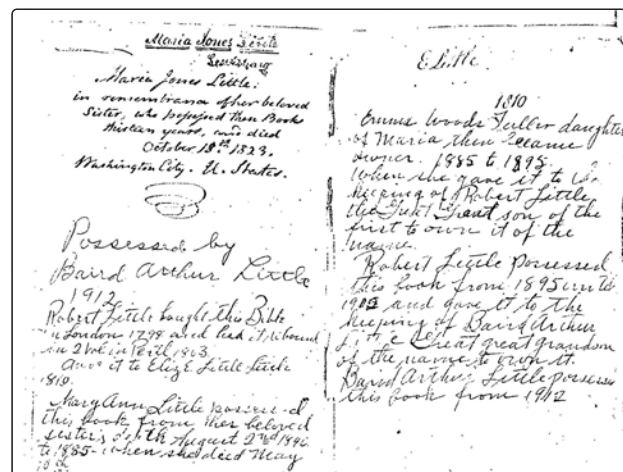 Maria Jones
Maria Jones Little:
in remembrance of her beloved
Sister, who possessed these Books
thirteen years, and died
October 18th 1823.
Washington City. U. States.
Possessed by
Baird Arthur Little
1912
Robert Little bought this Bible
in London 1798 and had it rebound
in 2 Vol in 1803
Gave it to Eliz E. Little
1810
Mary Ann Little possessed
this book from her beloved
sister's August 2nd 1846
to 1885 - when she died May
E Little
1810
Emma Woods Fuller daughter
of Maria then became
owner. 1885 to 1895
when she gave it to
keeping of Robert Little
the Great Grand son of the
first to own it of the
name.
Robert Little possessed
this book from 1895 unto
1912 and gave it to the
keeping of Baird Arthur
Little great great grandson
of the name to own it.
Baird Arthur Little possesses
this book from 1912